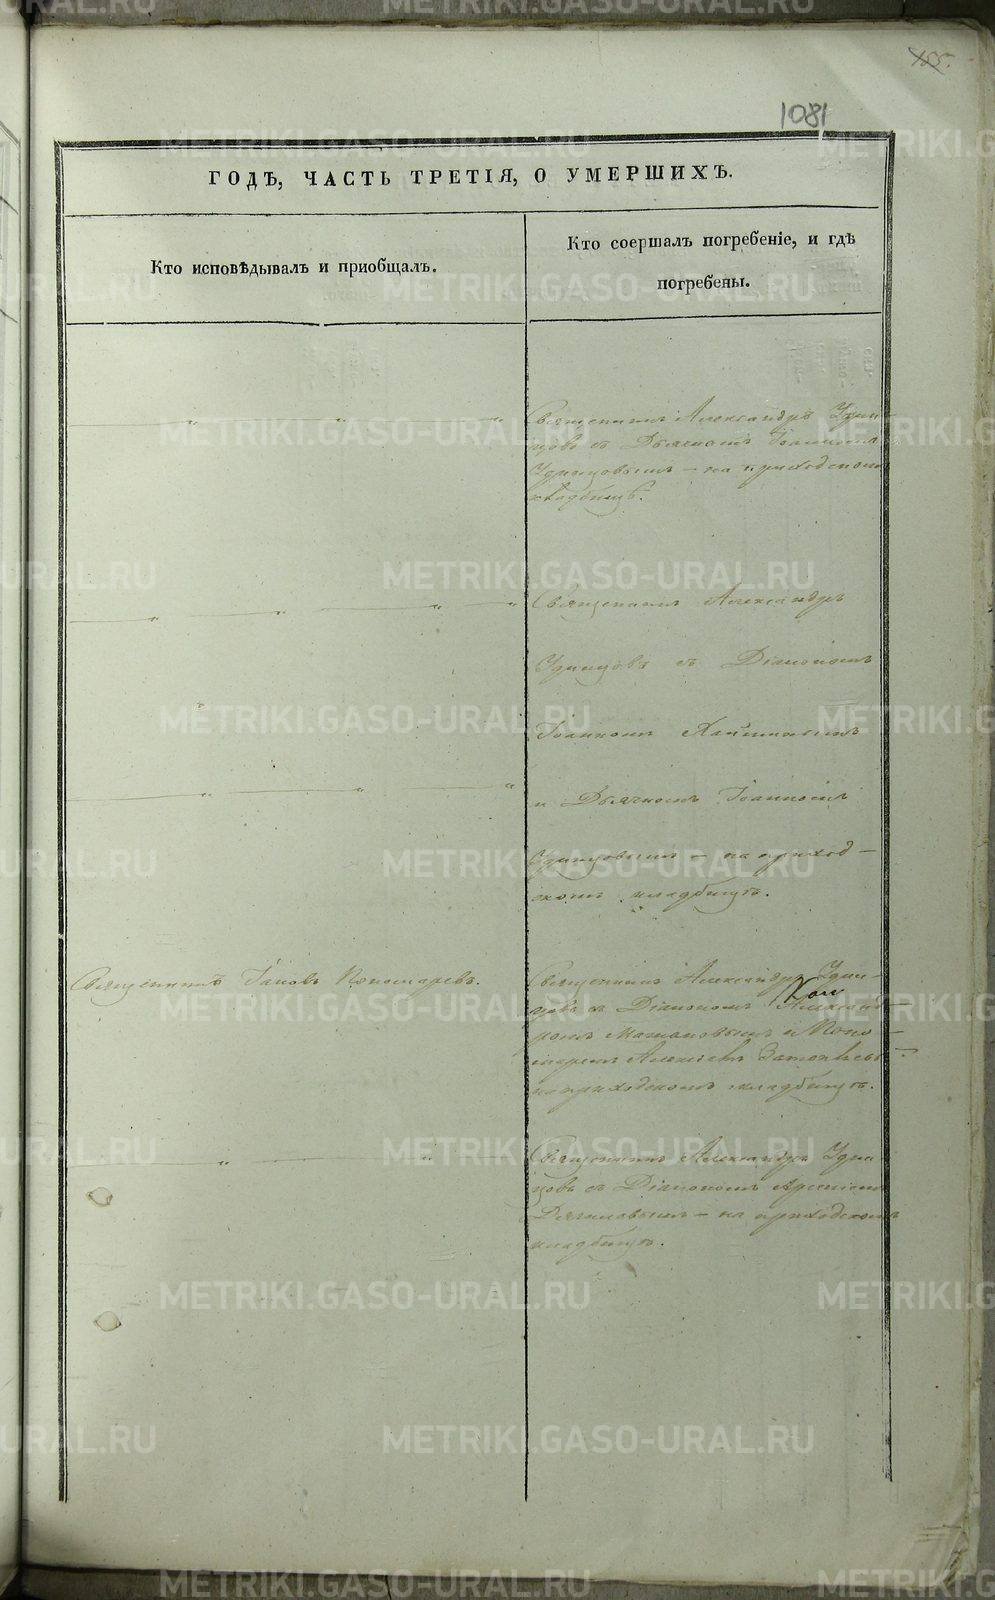 155.
1081
ГОДѢ, ЧАСТЬ ТРЕТІЯ, О УМЕРШИХЪ.
Кто исповѣдывалъ и пріобщалъ.
Кто соершалъ погребеніе, и гдѣ
погребены.
Священникъ Александръ Удин-
цовъ съ Дьячкомъ Іоанномъ
Удинцовымъ — на приходскомъ
кладбищѣ.
Священникъ Александръ
Удинцовъ съ Діакономъ
Іоанномъ
и Дьячкомъ Іоанномъ
Удинцовымъ — на приход-
скомъ кладбищѣ.
Священникъ Іаковъ Пономаревъ.
Священникъ Александръ Удин-
цовъ съ Діакономъ Александ-
ромъ и Поно-
маремъ
на приходскомъ кладбищѣ.
Священникъ Александръ Удин-
цовъ съ Діакономъ Арсеніемъ
— на приходскомъ
кладбищѣ.
METRIKI.GASO-URAL.RU